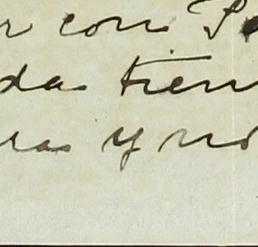 r con
da tien
ras y no